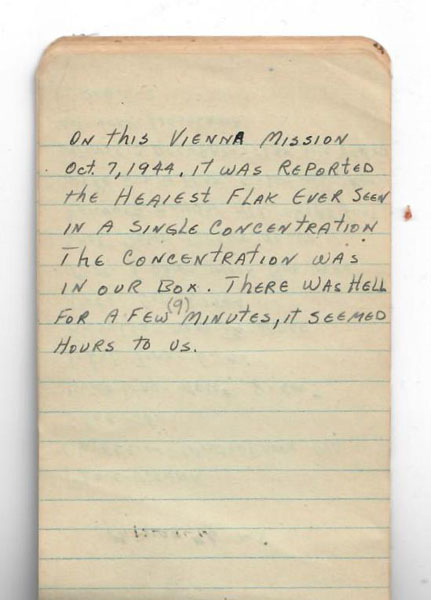 ON this VIENNA MISSION
Oct. 7, 1944, it WAS REPORTED
the HEAIEST FLAK EVER SEEN
IN A SINGLE CONCENTRATION
THE CONCENTRATION WAS
IN OUR BOX. THERE WAS HELL
FOR A FEW (9) MINUTES, it SEEMED
HOURS TO US.